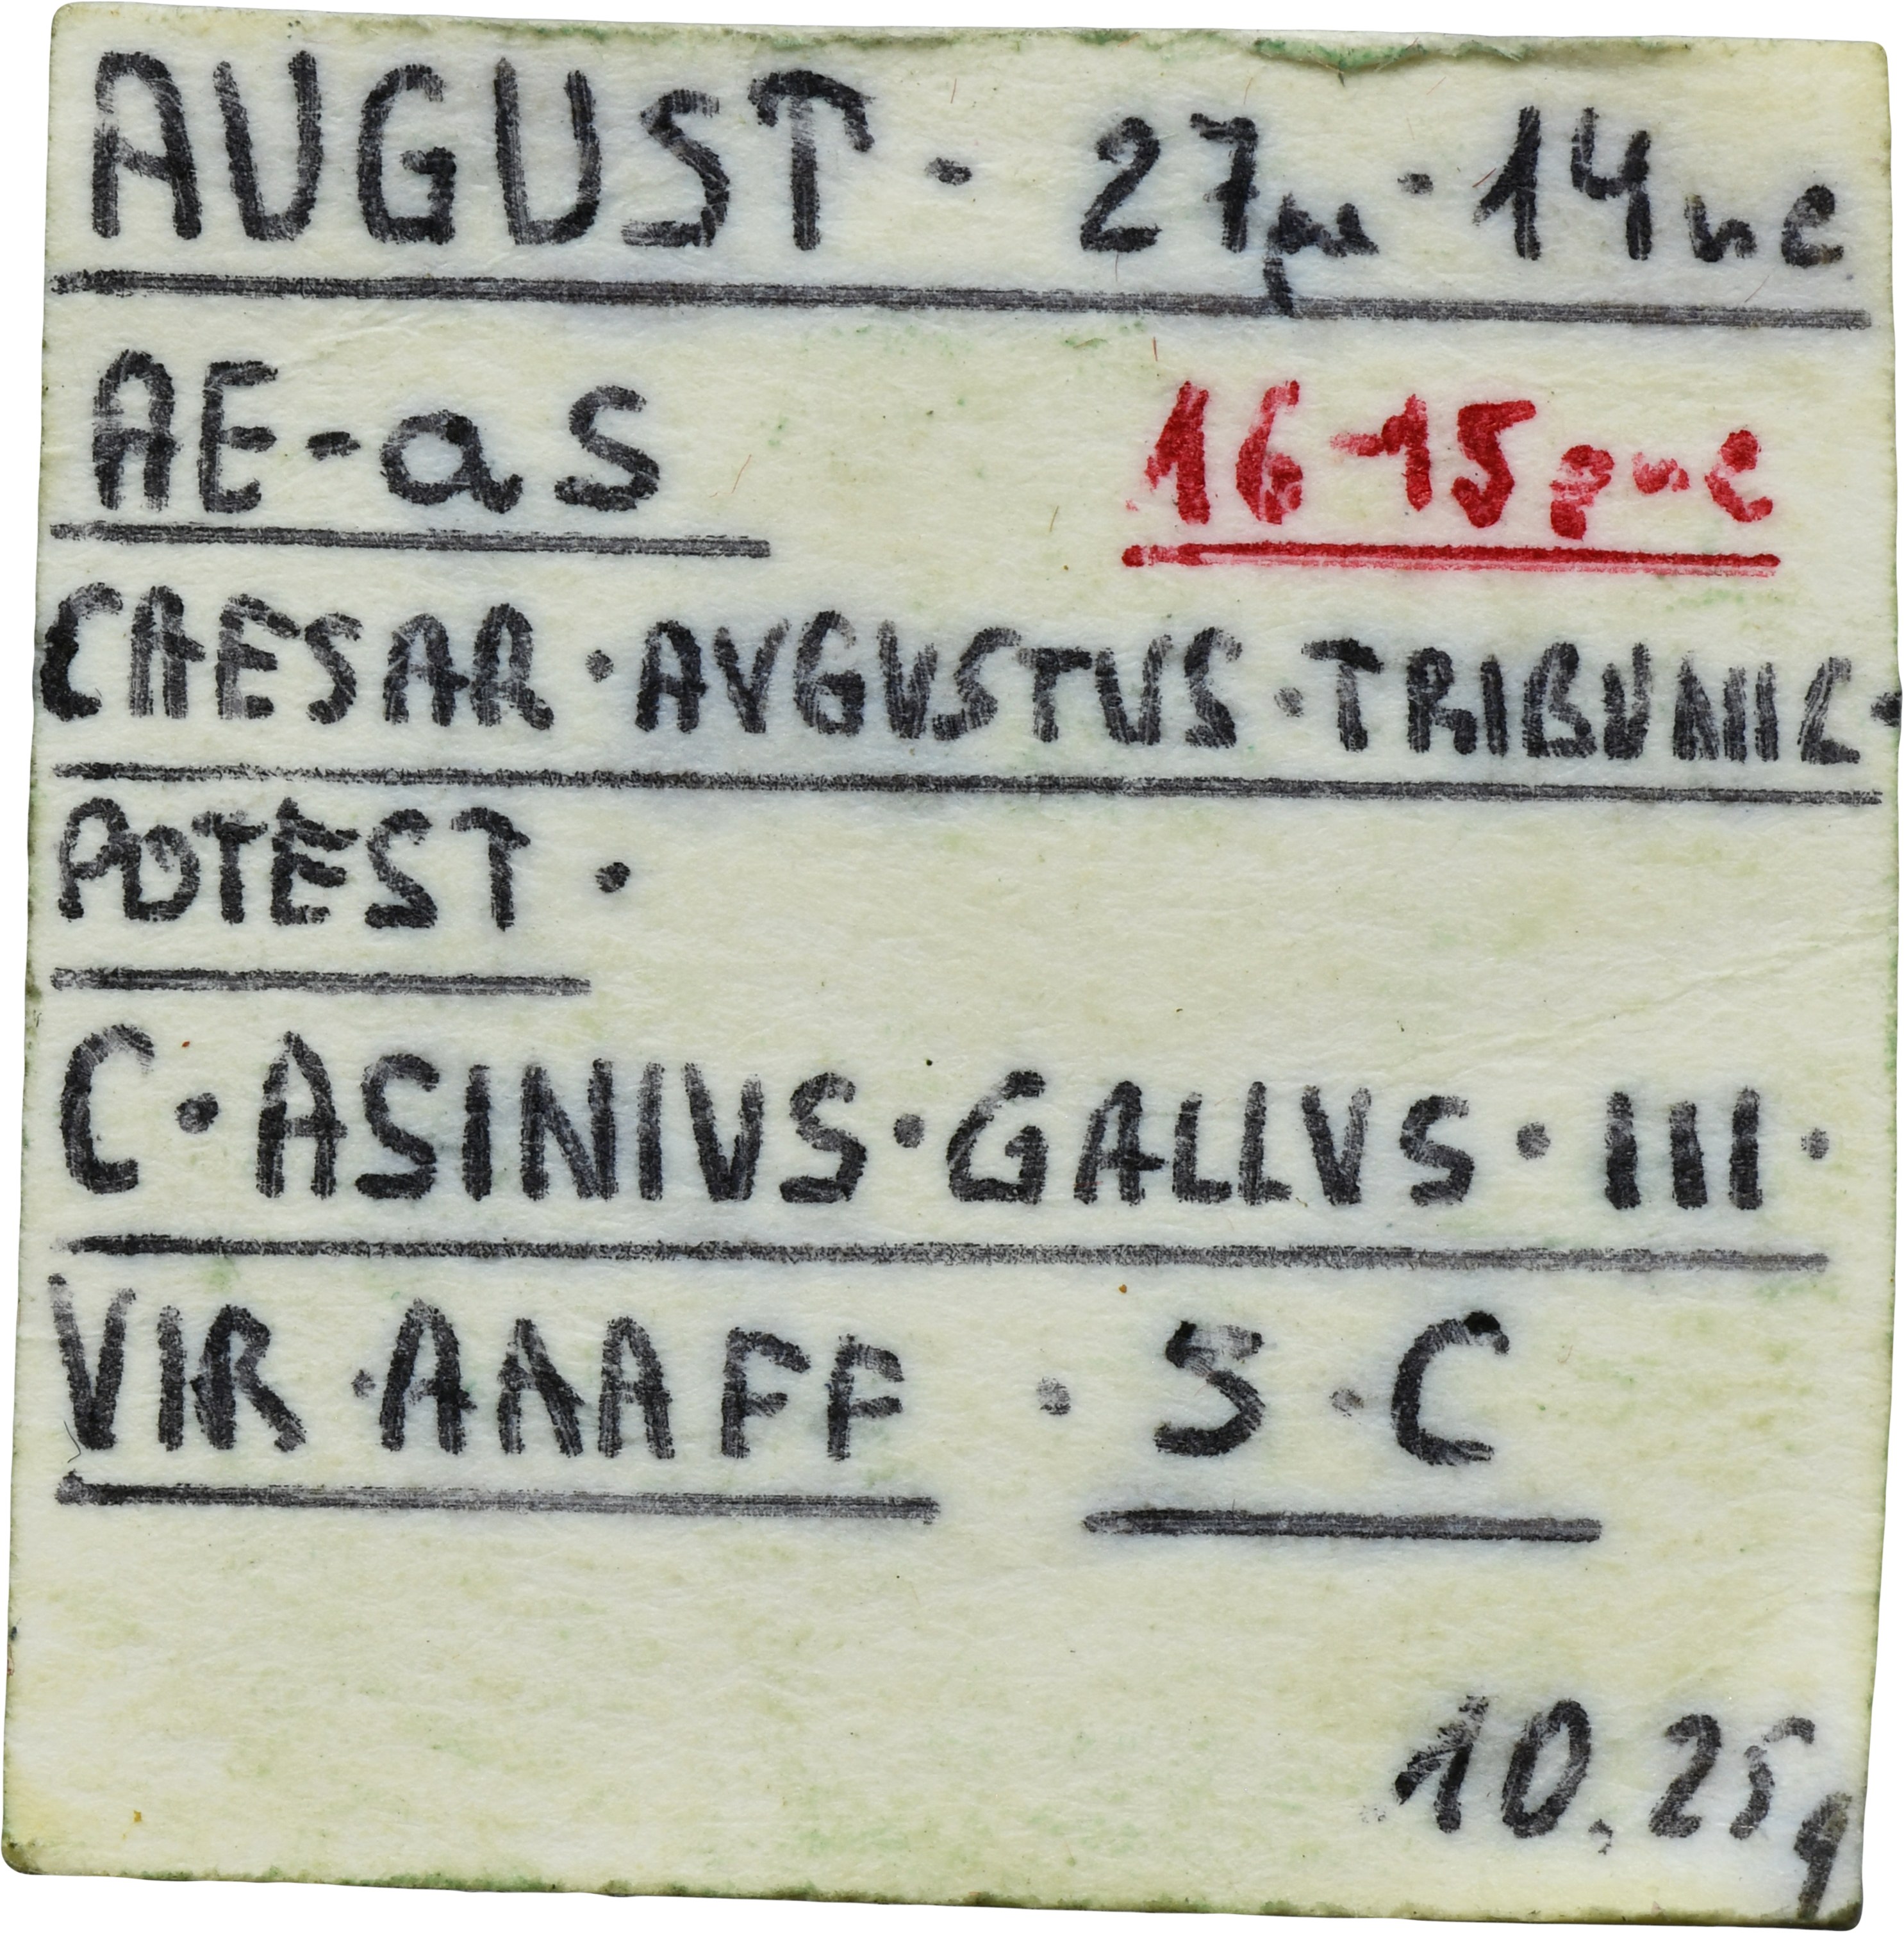 AUGUST - 27pne - 14 ne
AE-as 16-15 pne
CAESAR · AVGVSTUS · TRIBUNIC ·
POTEST ·
C · ASINIVS · GALLVS · III ·
VIR · AAAFF · S · C
10,25g